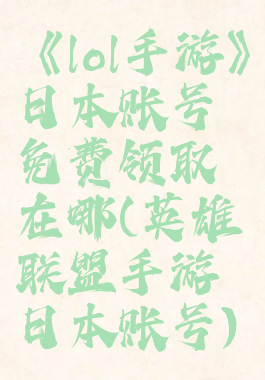 《lol手游》
日本账号
免费领取
在哪(英雄
联盟手游
日本账号)